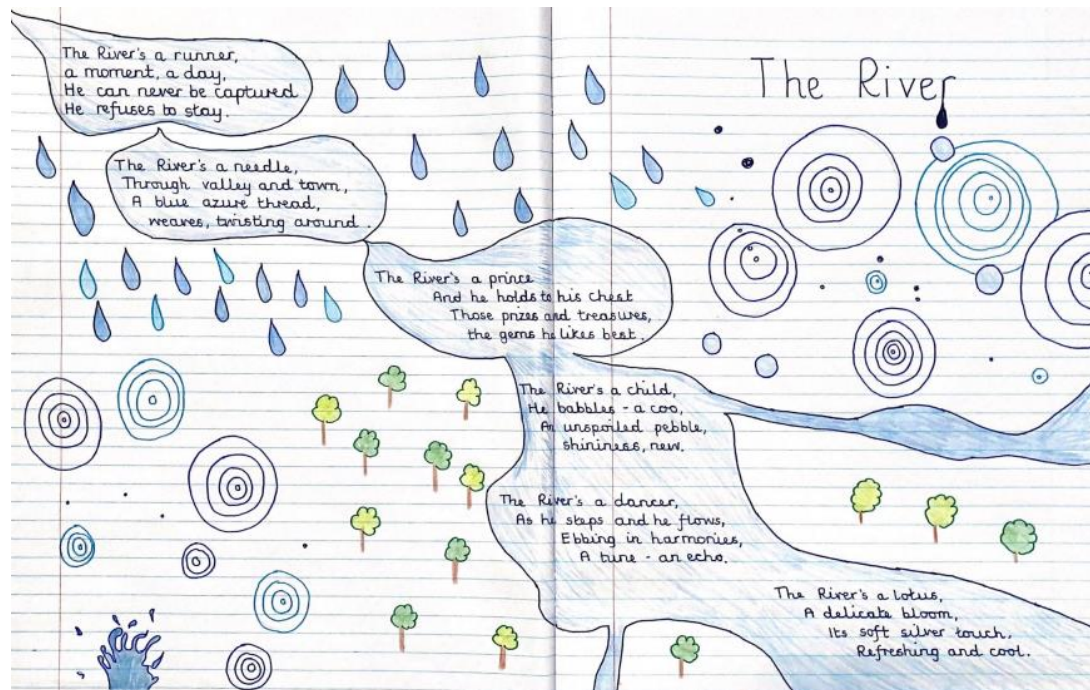 The River
The River's a runner,
a moment, a day,
He can never be captured
He refuses to stay.
The River's a needle,
Through valley and town,
A blue azure thread,
weaves, twisting around.
The River's a prince
And he holds to his chest
Those prizes and treasures,
the gems he likes best.
The River's a child,
He babbles - a coo,
An unspoiled pebble,
shininess, new.
The River's a dancer,
As he steps and he flows,
Ebbing in harmonies,
A tune - an echo.
The River's a lotus,
A delicate bloom,
Its soft silver touch,
Refreshing and cool.